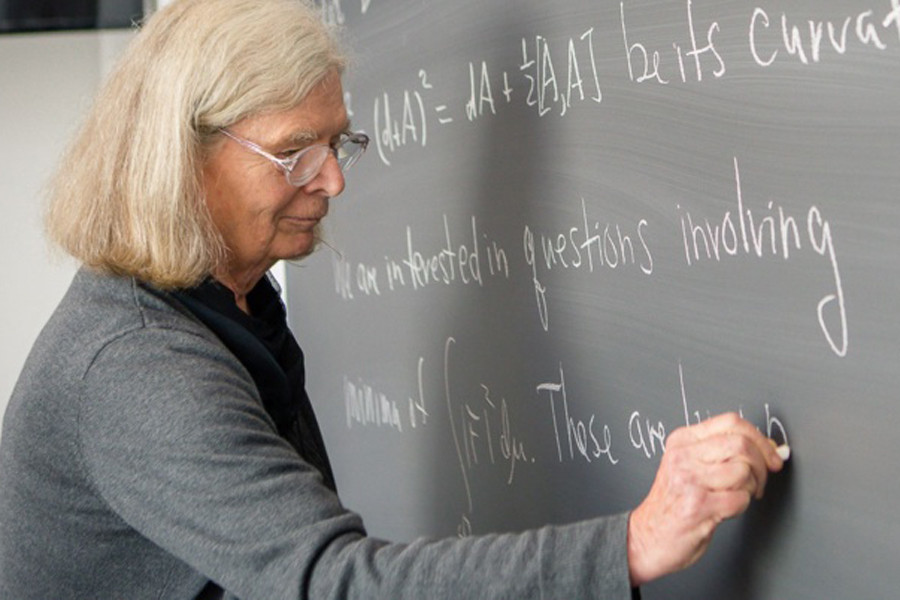 (d+A)² = dA + ½[A,A] be its curvat
We are interested in questions involving
minima of ∫ |F|² dμ. These are